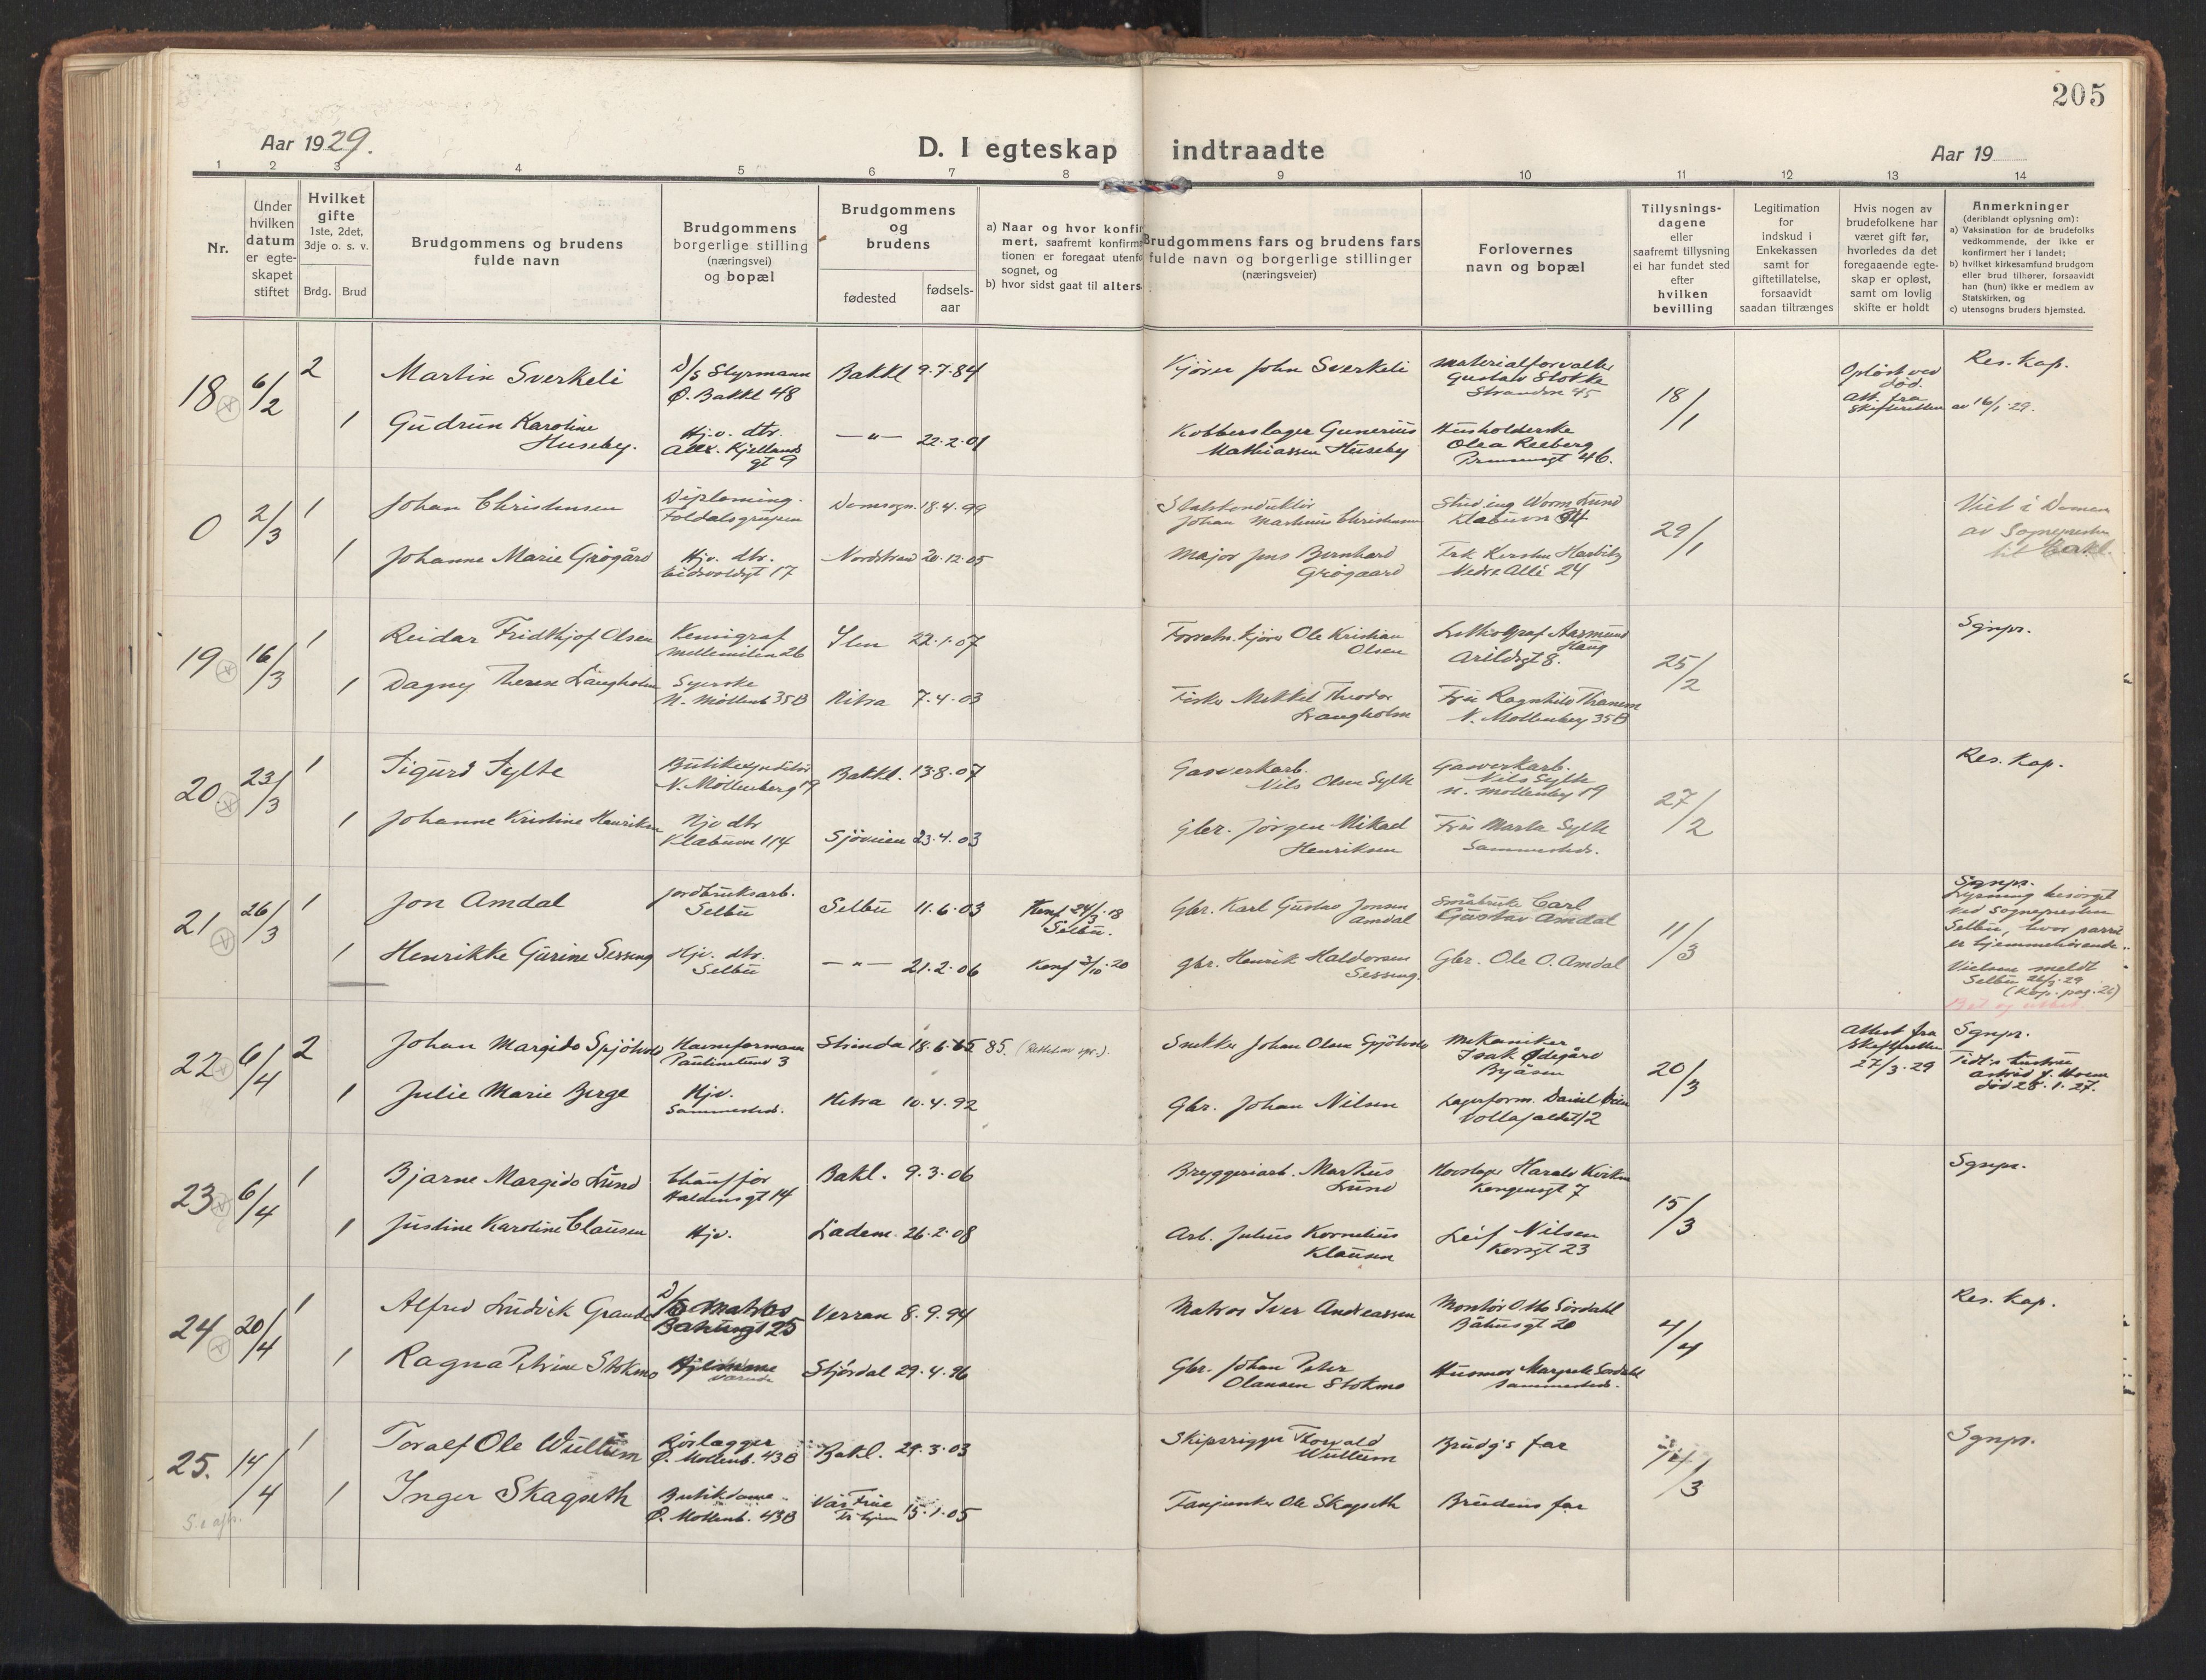 205
Aar 1929.
D. I egteskap indtraadte
Aar 19
1 2 3 4 5 6 7 8 9 10 11 12 13 14
Nr.
Under
hvilken
datum
er egte-
skapet
stiftet
Hvilket
gifte
1ste, 2det,
3dje o. s. v.
Brdg. Brud
Brudgommens og brudens
fulde navn
Brudgommens
borgerlige stilling
(næringsvei)
og bopæl
Brudgommens
og
brudens
fødested
fødsels-
aar
a) Naar og hvor konfir
mert, saafremt konfirm
tionen er foregaat utenfo
sognet, og
b) hvor sidst gaat til alters
Brudgommens fars og brudens fars
fulde navn og borgerlige stillinger
(næringsveier)
Forlovernes
navn og bopæl
Tillysnings-
dagene
eller
saafremt tillysning
ei har fundet sted
efter
hvilken
bevilling
Legitimation
for
indskud i
Enkekassen
samt for
giftetillatelse,
forsaavidt
saadan tiltrænges
Hvis nogen av
brudefolkene har
været gift før,
hvorledes da det
foregaaende egte-
skap er opløst,
samt om lovlig
skifte er holdt
Anmerkninger
(deriblandt oplysning om):
a) Vaksination for de brudefolks
vedkommende, der ikke er
konfirmert her i landet;
b) hvilket kirkesamfund brudgom
eller brud tilhører, forsaavidt
han (hun) ikke er medlem av
Statskirken, og
c) utensogns bruders hjemsted.
18 6/2 2
Martin Sverkeli
D/S Styrmann
Ø. Bakkl 48
Bakkl 9.7.84
Kjører John Sverkeli
Materialforvalter
Gustav Stokke
Stranden 45
18/1
Opløst ved
død.
Att. fra
Skifteretten av 16/1.29.
Res. kap.
1 Gudrun Karoline
Huseby.
Hj.v. dtr.
Alex. Kjellands
gt 9
—"— 22.2.01
Kobberslager Gunerius
Mathiassen Huseby
Husholderske
Olea Reeberg
46.
0 2/3 1
Johan Christensen
Diploming.
Foldalsgrupen
Domsogn. 18.4.99
Statskonduktör
Johan Martinus Christensen
Stud ing Worm Lund
Klæbuvn 34
29/1
Viet i Domen
av Sognepresten
til Bakl.
1 Johanne Marie Grögård
Hjv. dtr.
Eidsvoldsgt 17
Nordstrand 20.12.05
Major Jens Bernhard
Grögaard
Frk Kersten Harbitz
Nedre Allé 24
19 16/3 1
Reidar Fridthjof Olsen
Kemigraf
Mellemilen 26
Ilen 22.1.07
Forretn. kjører Ole Kristian
Olsen
Lithograf Aasmund
Haug
Arildsgt 8.
25/2
Sgnpr.
1 Dagny Therese Langholm
Syerske
N. Möllenb 35B
Hitra 7.4.03
Fisker Mikkel Theodor
Langholm
Fru Ragnhild Thanem
N. Mollenberg 35B
20. 23/3 1
Sigurd Sylte
Butikexpeditör
N. Möllenberg 19
Bakkl. 13.8.07
Gasverkarb.
Nils Olsen Sylte
Gasverkarb.
Nils Sylte
N. Möllenberg 19
27/2
Res. kap.
1 Johanne Kristine Henriksen
Hjv dtr
Klæbuvn 114
Sjövien 23.4.03
Gbr. Jörgen Mikael
Henriksen
Fru Marta Sylte
Sammesteds.
21 26/3 1
Jon Amdal
Jordbruksarb.
Selbu
Selbu 11.6.03
Konf 24/3.18
Selbu.
Gbr. Karl Gustav Jonsen
Amdal
Småbruker Carl
Gustav Amdal
11/3
Sgnpr.
Lysning besørget
ved Sognepresten
Selbu, hvor parret
er hjemmehörende.
Vielsen meldt
Selbu 26/3.29
(Kop. pag. 26)
1 Henrikke Gurine Sessung
Hjv. dtr.
Selbu
—"— 21.2.06
Konf 3/10.20
Gbr. Henrik Haldorsen
Sessung.
Gbr. Ole O. Amdal
22 6/4 2
Johan Margido Gjölvold
Havneformann
Paulinelund 3
Strinda 18.6.65 85.
Snekker Johan Olsen Gjölvold
Mekaniker
Isak Ødegård
Byåsen
20/3
Attest fra
Skifteretten
27/3.29
Sgnpr.
Tidl.s hustru
Astrid J. Hoem
död 28.1.27.
1 Julie Marie Berge
Hjv.
Sammesteds.
Hitra 10.4.92
Gbr. Johan Nilsen
Lagerform. Daniel Veien
Vollafaldet 12
23 6/4 1
Bjarne Margido Lund
Chauffør
Haldensgt 14
Bakl. 9.3.06
Bryggeriarb. Markus
Lund
Hovslager Harald Kirkm
Kongensgt 7
15/3
Sgnpr.
1 Justine Karoline Clausen
Hjv.
Ladem. 26.2.08
Arb. Julius Kornelius
Klausen
Leif Nilsen
Korsgt 23
24 20/4 1
Alfred Ludvik Grande
D/S Matros
Bahusgt 25
Verran 8.9.94
Matros Iver Andreassen
Montör Otto Sördahl
Båhusgt 20
4/4
Res. kap.
1 Ragna Petrine Stokmo
Hjemme
værende
Stjördal 29.4.96
Gbr. Johan Peter
Olausen Stokmo
Husmor Margrete Sördahl
sammesteds.
25. 14/4 1
Toralf Ole Wullum
Rörlægger
Ø. Mollenb. 43B
Bakl. 29.3.03
Skipsrigger Thorvald
Wullum
Brudg's far
14/3
Sgnpr.
1 Inger Skagseth
Butikdame
Ø. Mollenb. 43B
Vår Frue
Tr.hjem 15.1.05
Fanjunker Ole Skagseth
Brudens far